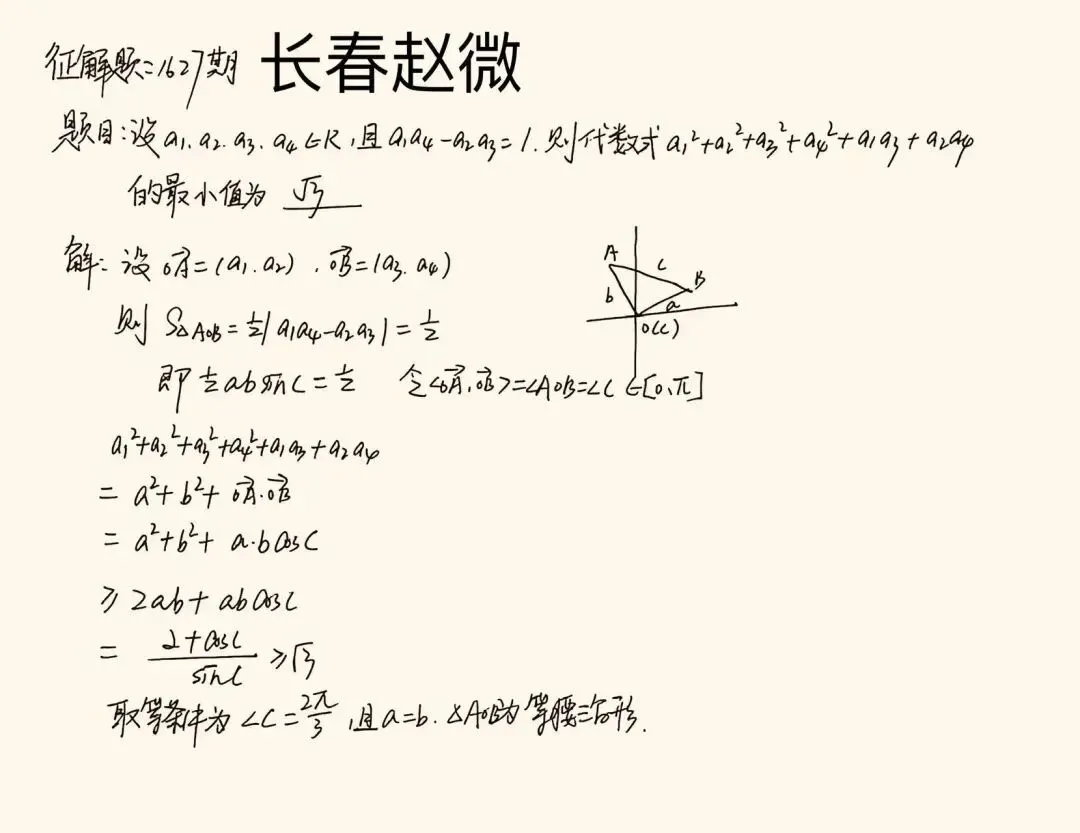 征解题=1627期 长春赵微
题目:设a₁.a₂.a₃.a₄∈R,且a₁a₄-a₂a₃=1.则代数式a₁²+a₂²+a₃²+a₄²+a₁a₃+a₂a₄
的最小值为 √3
解:设 \overrightarrow{OA}=(a₁.a₂).\overrightarrow{OB}=(a₃.a₄)
则 S△AOB=½|a₁a₄-a₂a₃|=½
即½absinC=½ 令<\overrightarrow{OA}.\overrightarrow{OB}>=∠AOB=∠C∈[0,π]
A
c
B
b
a
O(C)
a₁²+a₂²+a₃²+a₄²+a₁a₃+a₂a₄
=a²+b²+\overrightarrow{OA}·\overrightarrow{OB}
=a²+b²+a·bcosC
≥2ab+abcosC
=\frac{2+cosC}{sinC}≥√3
取等条件为∠C=\frac{2π}{3},且a=b.△AOB为等腰三角形.